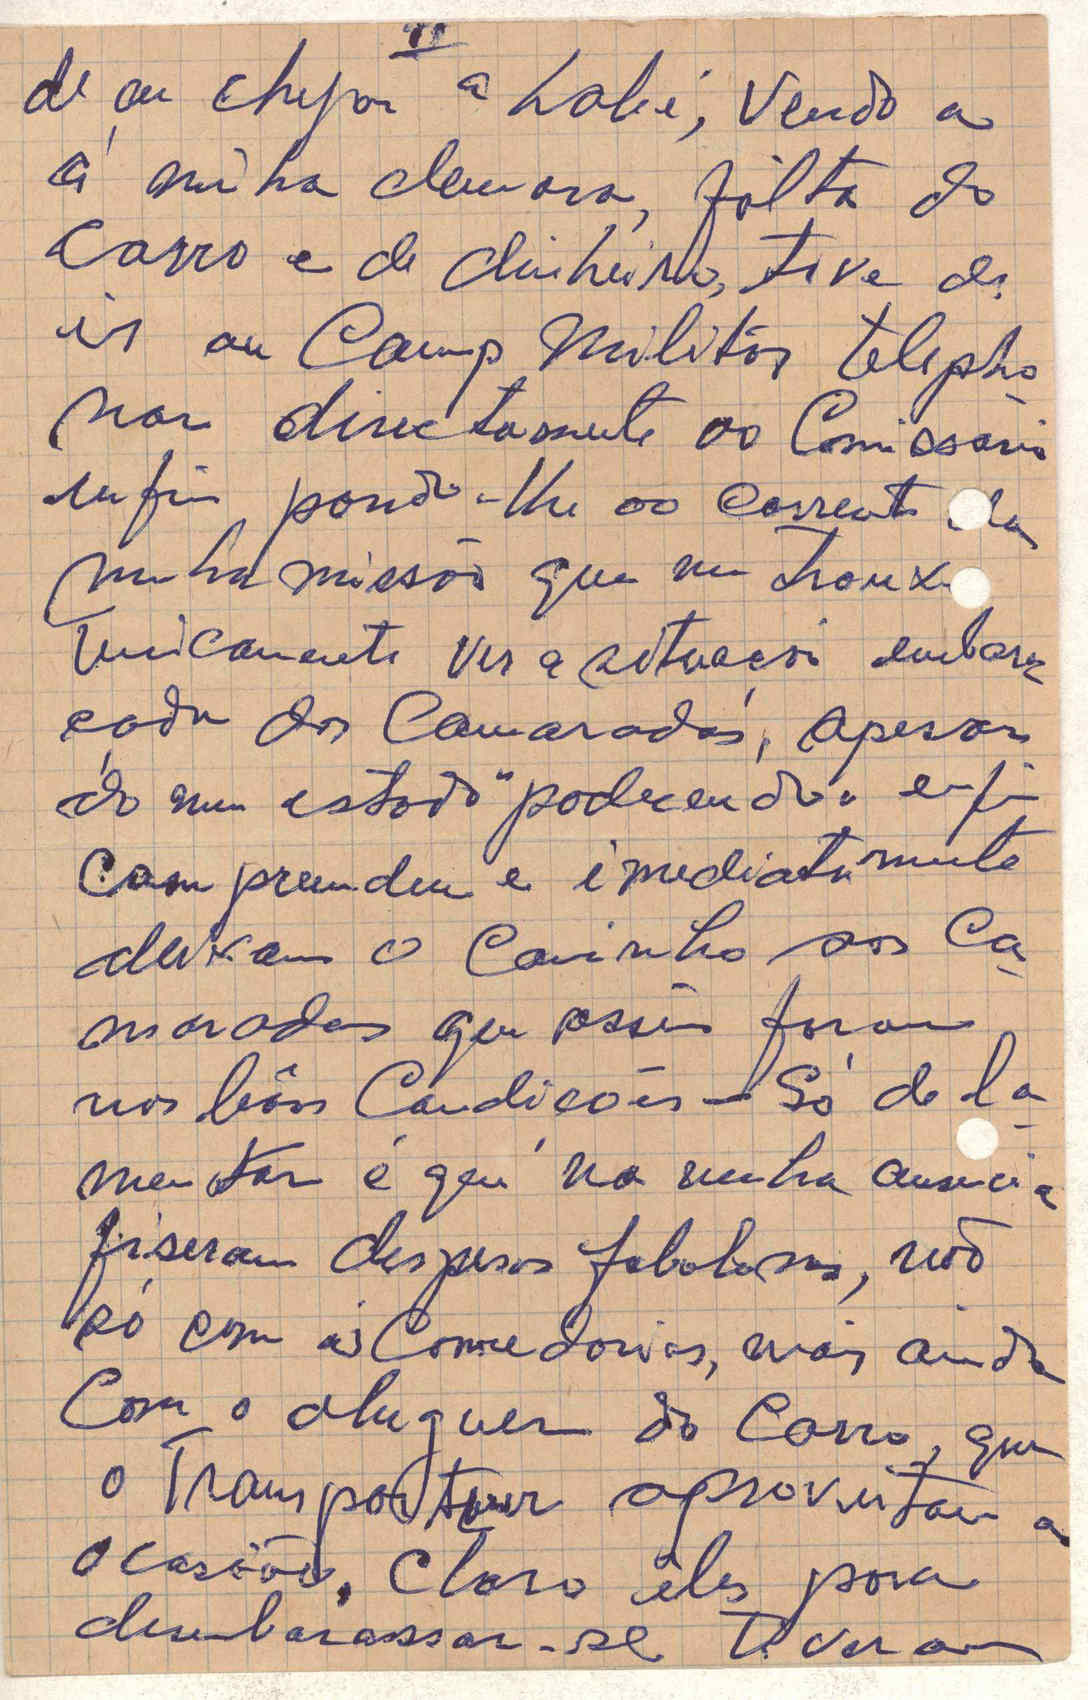 II
de eu chegar a Labé, vendo a
á minha demora, falta do
carro e de dinheiro, tive de
ir au Camp Militar telepho
nar directamente ao Comissário
enfin pondo-lhe ao corrente da
minha missão que me trouxe
unicamente ver a situação embara
çada dos Camaradas, apesar
do meu estado "padecendo" enfin
compreendeu e imediatamente
deixam o Caminho aos Ca-
maradas que assim foram
nas bôas Condições — Só de la-
mentar é que na minha ausencia
fiseram despesas fabolosas, não
só com as Comedorias, mas ainda
Com o aluguer do Carro, que
o Transporteur aproveitou a
ocasião. Claro êles para
desembarassar-se tiveram